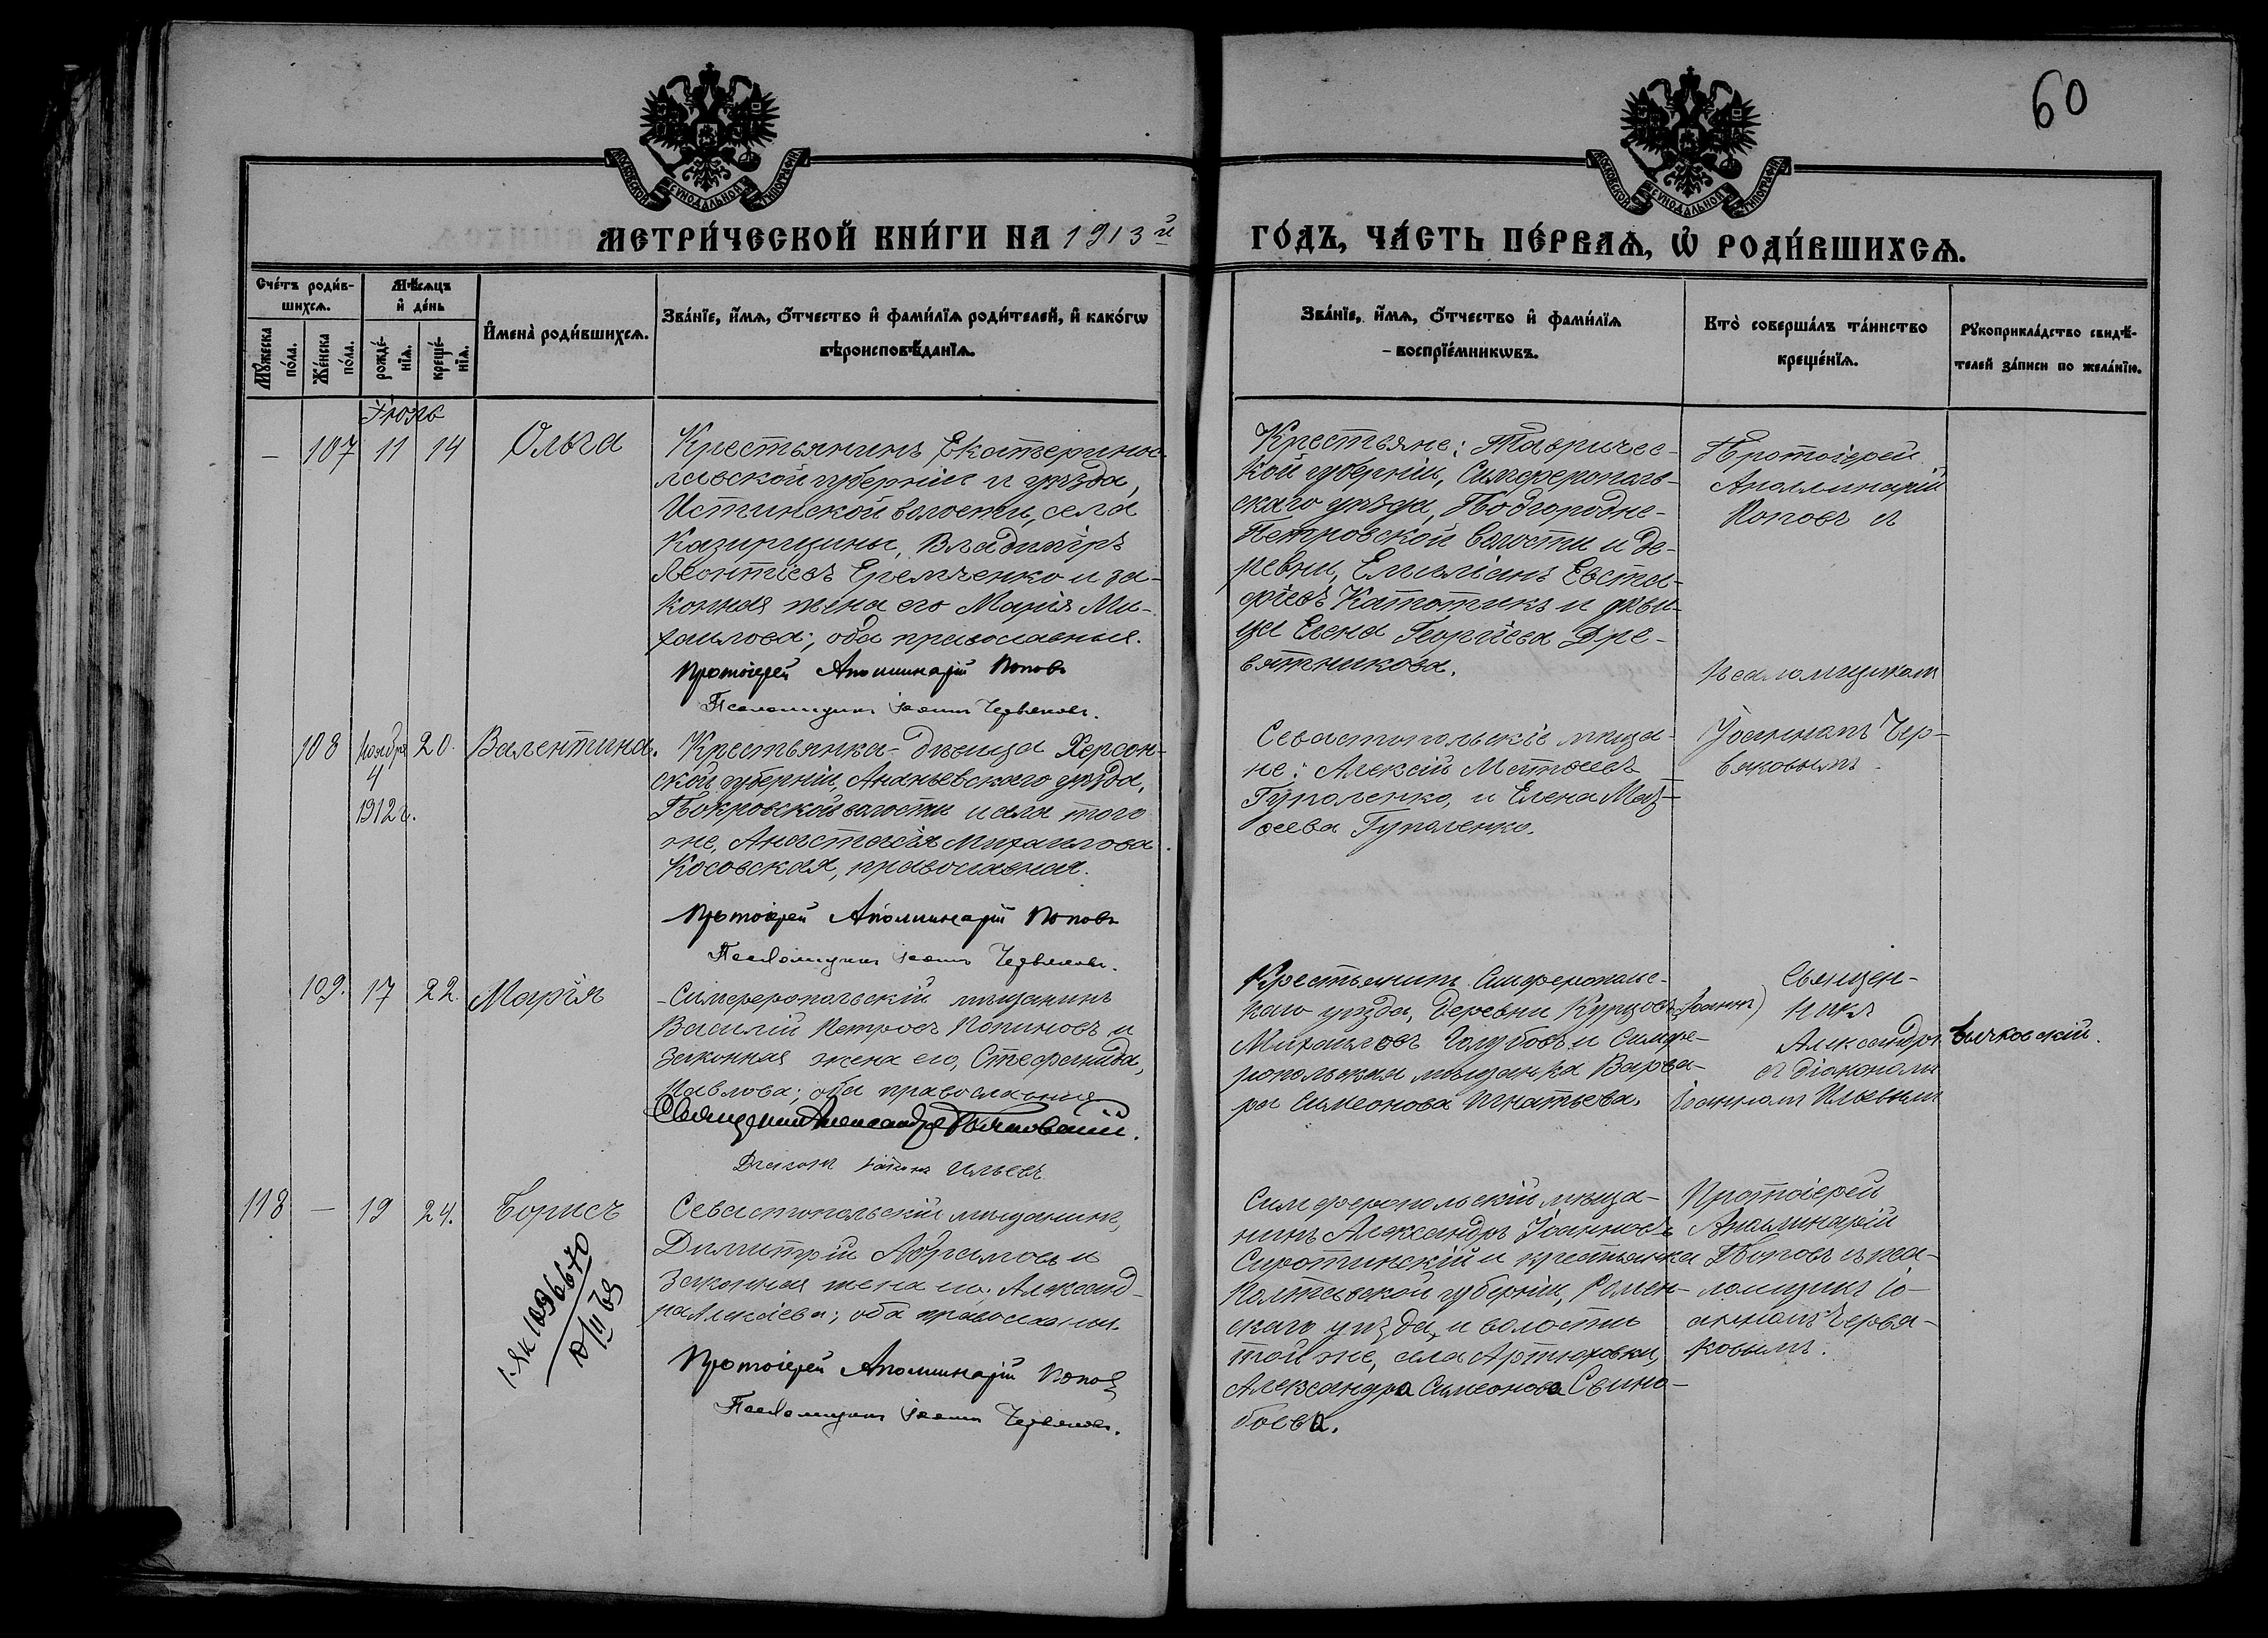 60
МОСКОВСКОЙ СУНОДАЛЬНОЙ ТИПОГРАФІИ
МОСКОВСКОЙ СУНОДАЛЬНОЙ ТИПОГРАФІИ
МЕТРИ́ЧЕСКОЙ КНИ́ГИ НА 1913й ГО́ДЪ, ЧА́СТЬ ПЕ́РВАѦ, Ѡ҆ РОДИ́ВШИХСѦ.
Сче́тъ роди́в-
шихсѧ.
Мꙋ́жеска
по́ла.
Же́нска
по́ла.
Мѣ́сѧцъ
и҆ де́нь
рожде́-
нїѧ.
креще́-
нїѧ.
И҆мена̀ роди́вшихсѧ.
Зва́нїе, и҆́мѧ, ѻ҆́тчество и҆ фами́лїѧ роди́телей, и҆ како́гѡ
вѣроисповѣ́данїѧ.
Зва́нїе, и҆́мѧ, ѻ҆́тчество и҆ фами́лїѧ
воспрїе́мникѡвъ.
Кто̀ соверша́лъ та́инство
креще́нїѧ.
Рꙋкоприкла́дство свидѣ́-
телей за́писи по жела́нїю.
Іюль
— 107 11 14 Ольга
Крестьянинъ Екатеринос-
лавской губерніи и уѣзда,
волости, села
Владиміръ
Леонтіевъ Еремченко и за-
конная жена его Марія Ми-
хаилова; оба православные.
Протоіерей Аполлинарій Поповъ
Псаломщикъ Іоаннъ Червяковъ.
Крестьяне: Тавричес-
кой губерніи, Симферополь-
скаго уѣзда, Подгородне-
Петровской волости и де-
ревни, Емиліанъ Евста-
фіевъ и дѣви-
ца Елена Георгіева Дре-
вятникова.
Протоіерей
Аполлинарій
Поповъ съ
псаломщикомъ
Іоанномъ Чер-
вяковымъ
108 Ноября 4 1912 г. 20. Валентина.
Крестьянка-дѣвица Херсон-
ской губерніи, Ананьевскаго уѣзда,
Покровской волости и села того
же, Анастасія Михаилова
Косовская, православная.
Протоіерей Аполлинарій Поповъ
Псаломщикъ Іоаннъ Червяковъ.
Севастопольскіе мѣща-
не: Алексій Матѳеевъ
Гупаленко, и Елена Мат-
ѳеева Гупаленко.
109. 17 22. Марія
Симферопольскій мѣщанинъ
Василій Петровъ и
законная жена его, Стефанида,
Павлова; оба православные
Священникъ Александръ Бычковскій.
Діаконъ Іоаннъ Ильевъ
Крестьянинъ Симферопольс-
каго уѣзда, деревни Курцовъ, Іоаннъ
Михаиловъ Голубовъ и Симфе-
ропольская мѣщанка Варва-
ра Симеонова Игнатьева.
Священ-
никъ
Александръ Бычковскій.
съ діакономъ
Іоанномъ Ильевымъ
118 — 19 24. Борисъ
1-ЯК 1096670
Севастопольскій мѣщанинъ,
Димитрій Абрамовъ и
законная жена его Александ-
ра Алексіева; оба православны.
Протоіерей Аполлинарій Поповъ
Псаломщикъ Іоаннъ Червяковъ.
Симферопольскій мѣща-
нинъ Александръ Іоанновъ
Сиротинскій и крестьянка
Полтавской губерніи, Ромен-
скаго уѣзда, и волости
той же, села Артюховки,
Александра Симеонова Свино-
боева.
Протоіерей
Аполлинарій
Поповъ съ пса-
ломщикъ Іо-
анномъ Червя-
ковымъ.